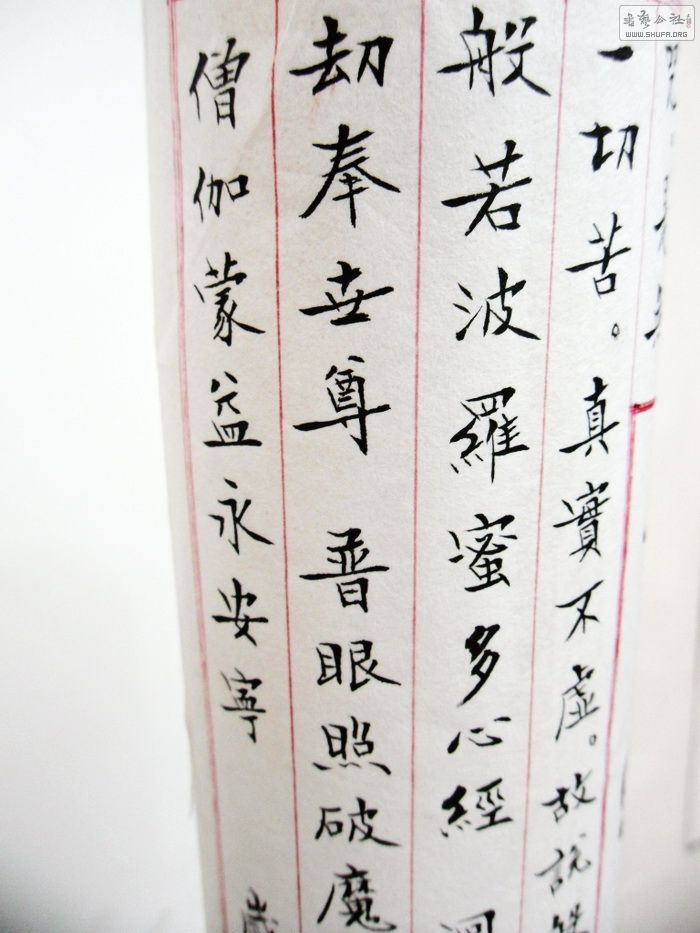 一切苦。真實不虛。故說
般若波羅蜜多心經
劫奉世尊 普眼照破魔
僧伽蒙益永安寧 歲
WWW.SHUFA.ORG